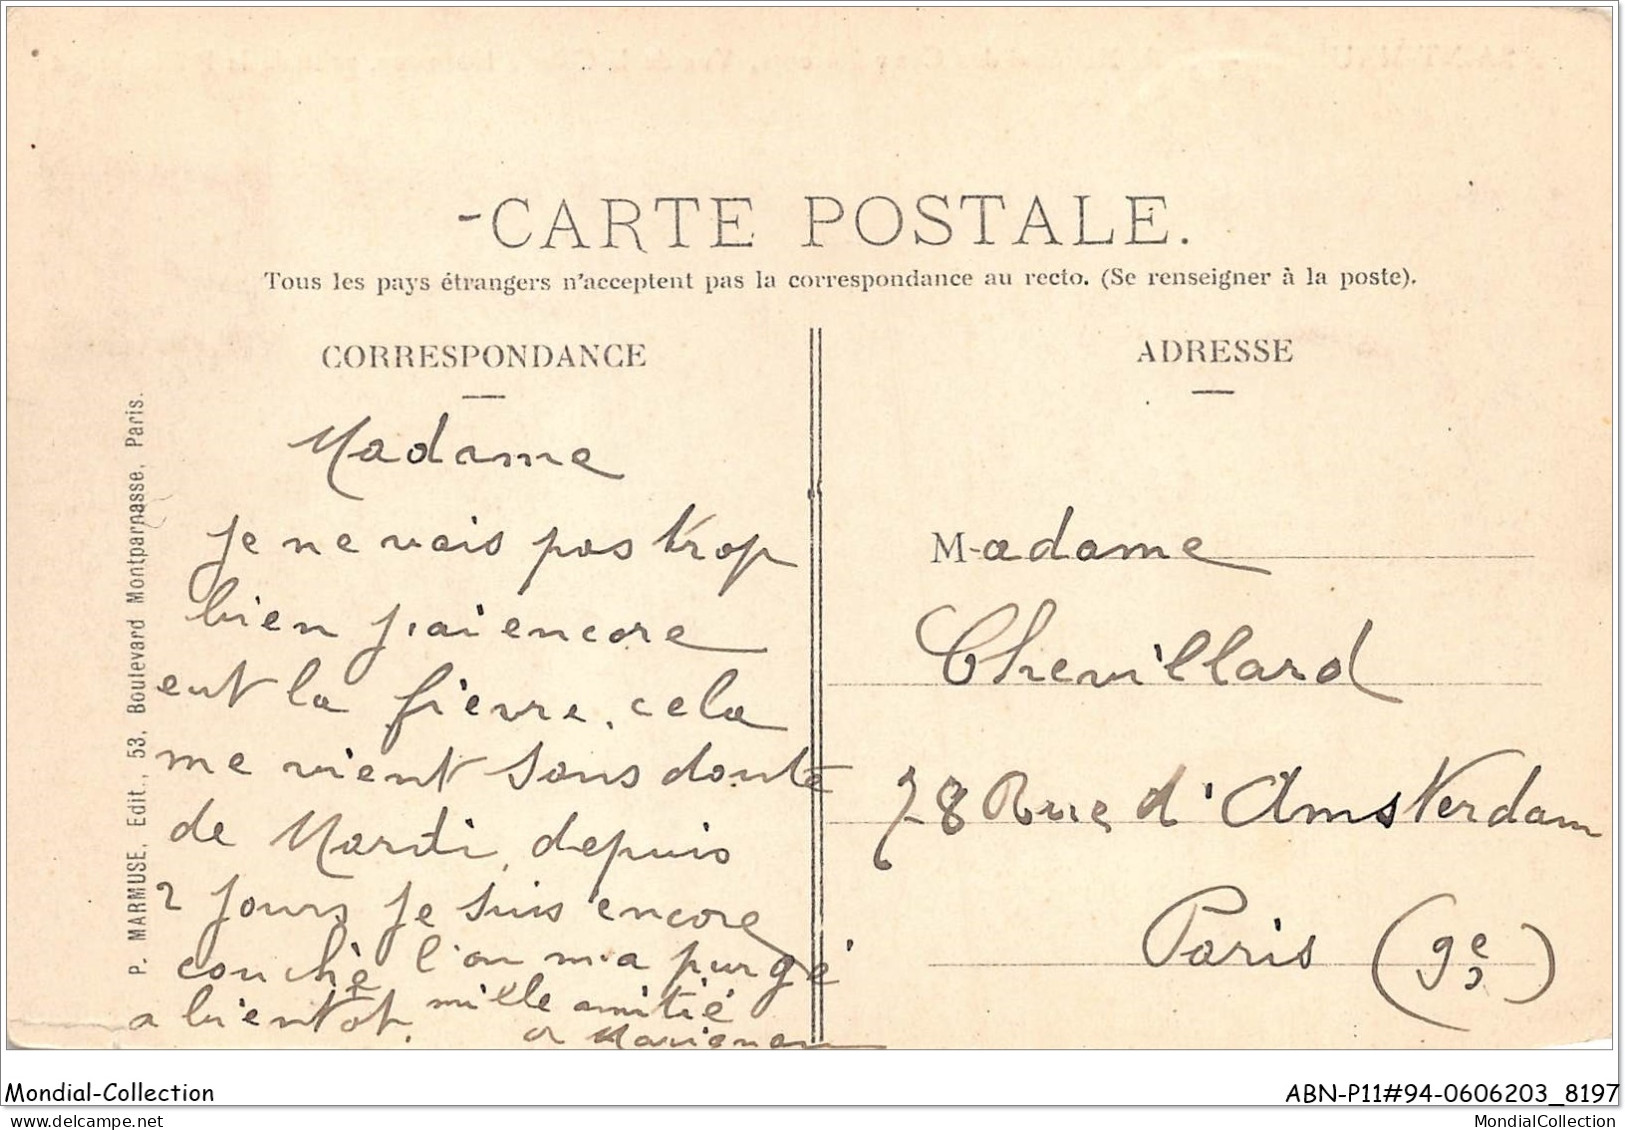 -CARTE POSTALE.
Tous les pays étrangers n'acceptent pas la correspondance au recto. (Se renseigner à la poste).
CORRESPONDANCE
Madame
je ne vais pas trop
bien j'ai encore
eut la fièvre, cela
me vient sans doute
de Mardi, depuis
2 jours je suis encore
couché l'on m'a purgé
a bientot, mille amitié
P. MARMUSE, Edit., 53, Boulevard Montparnasse, Paris.
ADRESSE
Madame
Chevillard
78 Rue d'Amsterdam
Paris (9e)
Mondial-Collection
ABN-P11#94-0606203_8197
www.delcampe.net
MondialCollection